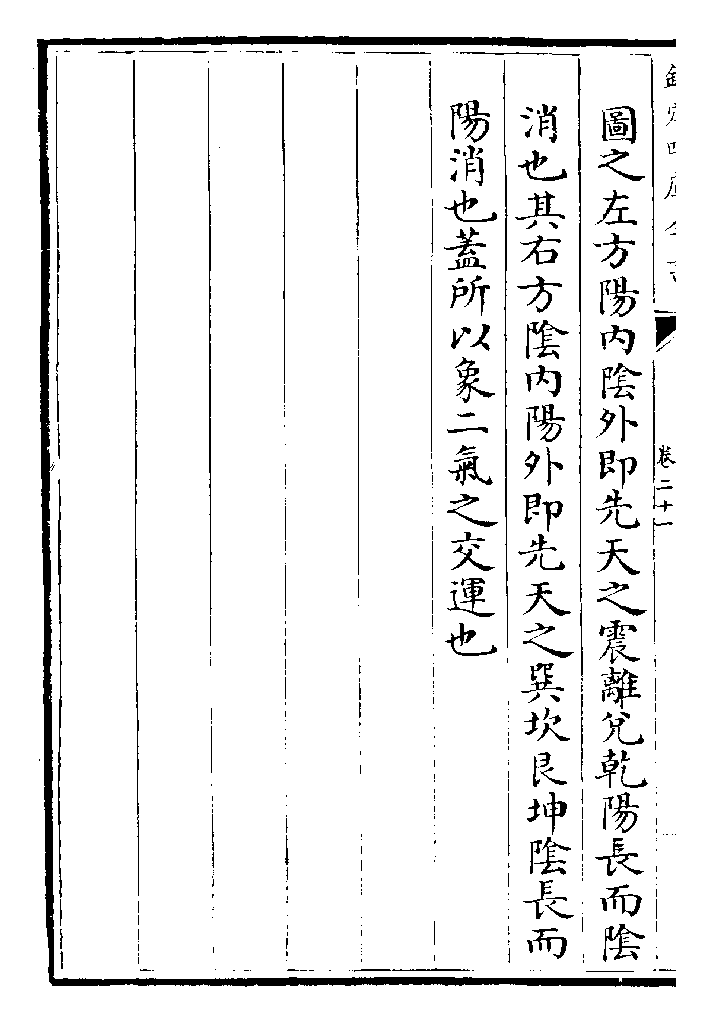 圖之左方陽内陰外即先天之震離兌乾陽長而陰
消也其右方陰内陽外即先天之巽坎艮坤陰長而
陽消也蓋所以象二氣之交運也
卷二十一